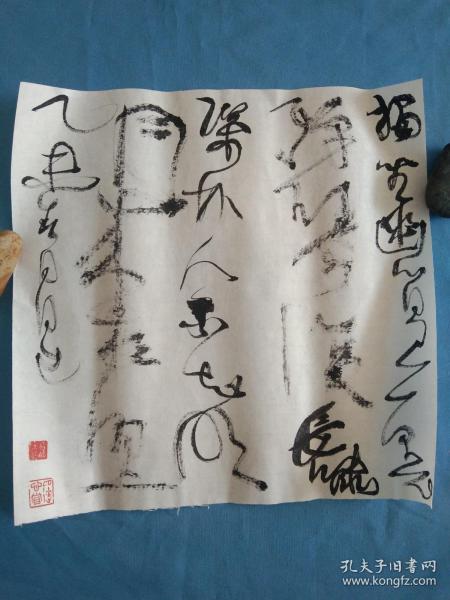 獨坐幽篁里
彈琴復長嘯
深林人不知明
月来相照
乙
孔夫子旧书网
www.kongfz.com